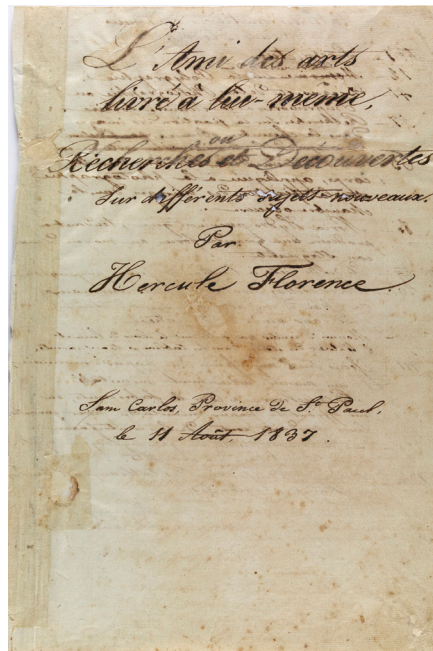 L'Ami des arts
livré à lui-meme,
ou
Recherches et Découvertes
sur différents sujets nouveaux.
Par
Hercule Florence
Sam Carlos, Province de St. Paul,
le 11 Août 1837.